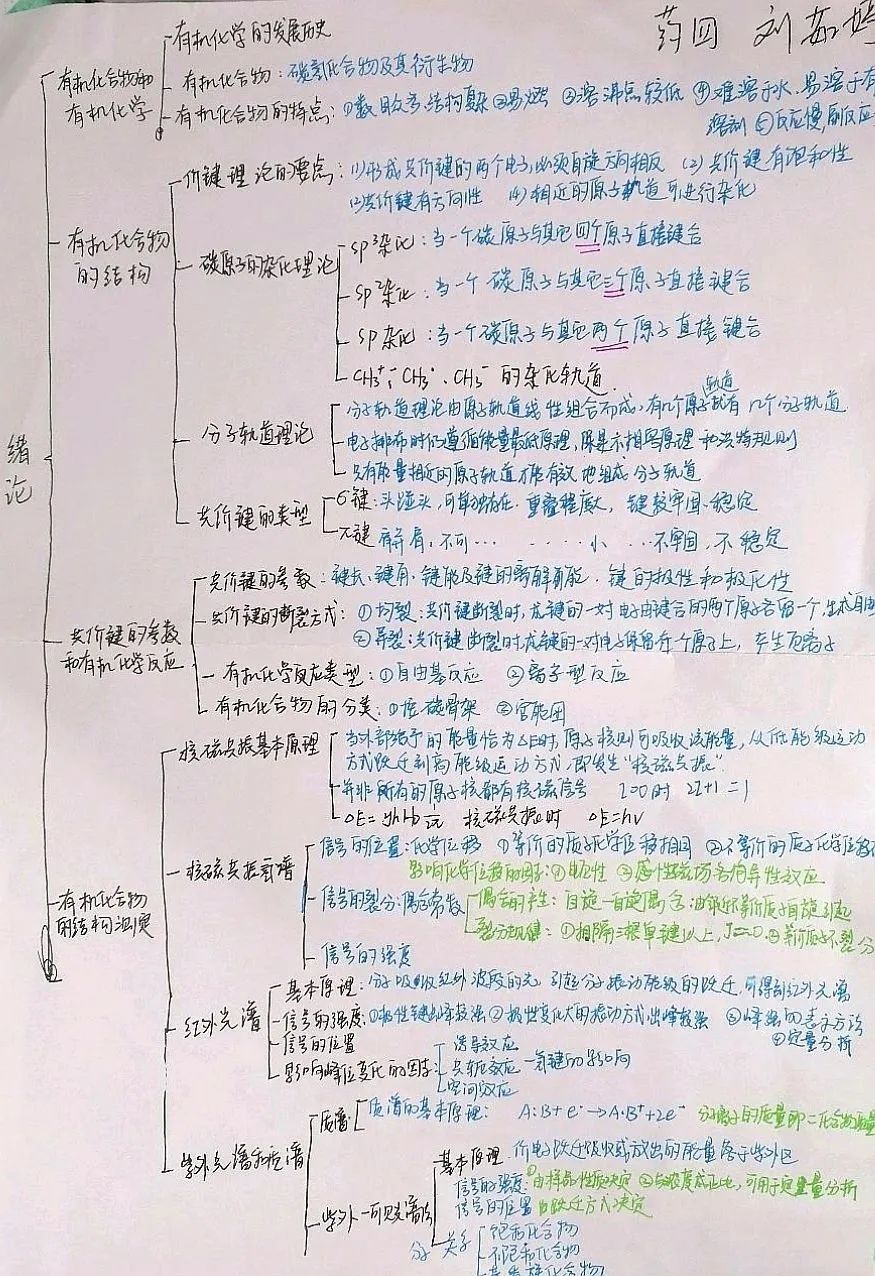 药四 刘茹嫣
绪论
有机化合物和
有机化学
有机化学的发展历史
有机化合物：碳氢化合物及其衍生物
有机化合物的特点：①数目众多、结构复杂 ②易燃 ③溶沸点较低 ④难溶于水、易溶于有
溶剂 ⑤反应慢，副反应
有机化合物
的结构
价键理论的要点：(1)形成共价键的两个电子，必须自旋方向相反 (2)共价键有饱和性
(2)共价键有方向性 (4)相近的原子轨道可进行杂化
碳原子的杂化理论
sp³杂化：当一个碳原子与其它四个原子直接键合
sp²杂化：当一个碳原子与其它三个原子直接键合
sp杂化：当一个碳原子与其它两个原子直接键合
CH₃⁺、CH₃·、CH₃⁻的杂化轨道
分子轨道理论
轨道
分子轨道理论由原子轨道线性组合而成，有几个原子就有几个分子轨道
电子排布时仍遵循能量最低原理，保里不相容原理和洪特规则
只有能量相近的原子轨道才能有效地组成分子轨道
共价键的类型
σ键：头碰头，可单独存在．重叠程度大，键较牢固、稳定
π键 肩并肩，不可… …小…不牢固，不稳定
共价键的参数
和有机化学反应
共价键的参数：键长、键角、键能及键的离解能．键的极性和极化性
共价键的断裂方式：①均裂：共价键断裂时，成键的一对电子由键合的两个原子各留一个，生成自由
②异裂：共价键断裂时，成键的一对电子保留在一个原子上，产生正离子
有机化学反应类型：①自由基反应 ②离子型反应
有机化合物的分类：①按碳骨架 ②官能团
有机化合物
的结构测定
核磁共振基本原理
当外部给予的能量恰为ΔE时，原子核则可吸收该能量，从低能级运动
方式跃迁到高能级运动方式，即发生“核磁共振”
并非所有的原子核都有核磁信号 I=0时 2I+1=1
核磁共振时 ΔE=hν
核磁共振氢谱
信号的位置：化学位移 ①等价的质子化学位移相同 ②不等价的质子化学位移
影响化学位移的因子：①电负性 ②磁场各向异性效应
信号的裂分：偶合常数
偶合的产生：自旋—自旋偶合；由邻近不等价质子自旋引起
裂分规律：①相隔三根单键以上，J=0 ②等价质子不裂分
信号的强度
红外光谱
基本原理：分子吸收红外波段的光，引起分子振动能级的跃迁，可得到红外光谱
信号的强度：①极性键出峰较强 ②极性变化大的振动方式出峰较强 ③峰强的表示方法
④定量分析
信号的位置
影响峰位变化的因子：
诱导效应
共轭效应
氢键的影响
空间效应
紫外光谱和质谱
质谱
质谱的基本原理：A:B+e⁻→A·B⁺+2e⁻ 分子离子的质量即=化合物质量
紫外—可见光谱
基本原理 价电子跃迁吸收或放出的能量落于紫外区
信号的强度：①由样品性质决定 ②与浓度成正比，可用于定量分析
信号的位置 由跃迁方式决定
分子关系
饱和化合物
不饱和化合物